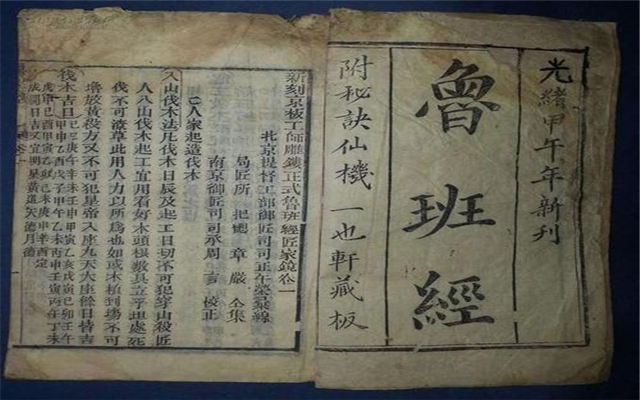 光緒甲午年新刊
魯班經
附秘訣仙機 一也軒藏板
新刻京板工師雕鏤正式魯班經匠家鏡卷一
北京提督工部御匠司司正午榮彙編
局匠所把總章嚴仝集
南京御匠司司承周言校正
○人家起造伐木
入山伐木法凡伐木日辰及起工日切不可犯穿山殺匠
人入山伐木起工宜用看好木頭根數具立平坦處斫
伐不可潦草此用人力以所爲也如或木植到塲不可
堆放黃殺方又不可犯星帝八座九天大座餘日皆吉
伐木吉日己巳庚午辛未壬申甲乙亥戊寅己卯壬午
甲申乙酉戊子甲午乙未丙申壬寅丙午丁未
戊申己酉甲寅乙卯己未庚申辛酉定
成開日吉又宜明星黃道天德月德